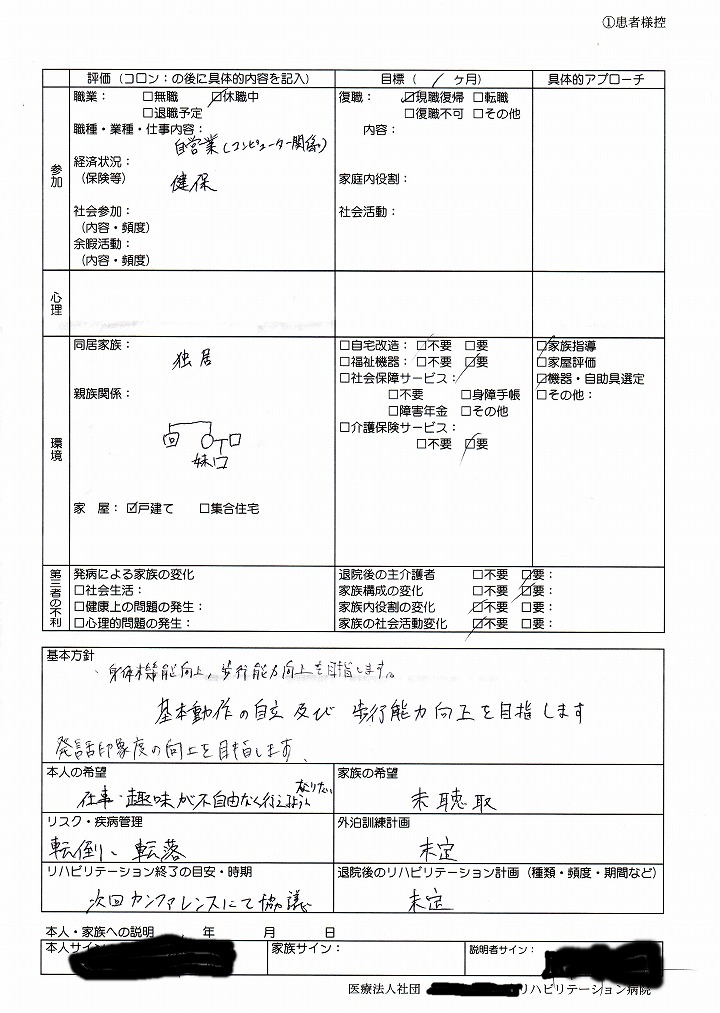 ①患者様控
評価（コロン：の後に具体的内容を記入） 目標（ / ヶ月） 具体的アプローチ
参加
職業： □無職 ☑休職中
□退職予定
職種・業種・仕事内容：
自営業(コンピューター関係)
経済状況：
（保険等） 健保
社会参加：
（内容・頻度）
余暇活動：
（内容・頻度）
復職： ☑現職復帰 □転職
□復職不可 □その他
内容：
家庭内役割：
社会活動：
心理
環境
同居家族：
独居
親族関係：
妹
家 屋： ☑戸建て □集合住宅
□自宅改造： ☑不要 □要
□福祉機器： □不要 ☑要
□社会保障サービス：
□不要 □身障手帳
□障害年金 □その他
□介護保険サービス：
□不要 ☑要
☑家族指導
□家屋評価
☑機器・自助具選定
□その他：
第三者の不利
発病による家族の変化
□社会生活：
□健康上の問題の発生：
□心理的問題の発生：
退院後の主介護者 □不要 ☑要：
家族構成の変化 □不要 ☑要：
家族内役割の変化 ☑不要 □要：
家族の社会活動変化 ☑不要 □要：
基本方針
、身体機能向上、歩行能力向上を目指します。
基本動作の自立及び 歩行能力向上を目指します
発話印象度の向上を目指します、
本人の希望
仕事・趣味が不自由なく行えるように
なりたい
家族の希望
未聴取
リスク・疾病管理
転倒、転落
外泊訓練計画
未定
リハビリテーション終了の目安・時期
次回カンファレンスにて協議
退院後のリハビリテーション計画（種類・頻度・期間など）
未定
本人・家族への説明 年 月 日
本人サイン 家族サイン： 説明者サイン：
医療法人社団 リハビリテーション病院